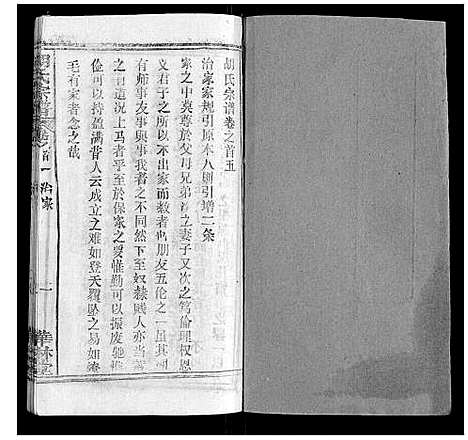 胡氏宗谱卷之首五
治家家规引原本八则引增二条
家之中莫尊於父母兄弟首之妻子又次之笃倫理权恩
义君子之所以不出家而成教也朋友五伦之一而其制
有师事友事與事我者之不同然下至奴隸贱人亦当裁
之有道况上焉者乎至於保家之要惟勤可以振废驰惟
俭可以持盈满昔人云成立之难如登天覆坠之易如燎
毛有家者念之哉
胡氏宗譜
卷之首一
治家
一
華林堂